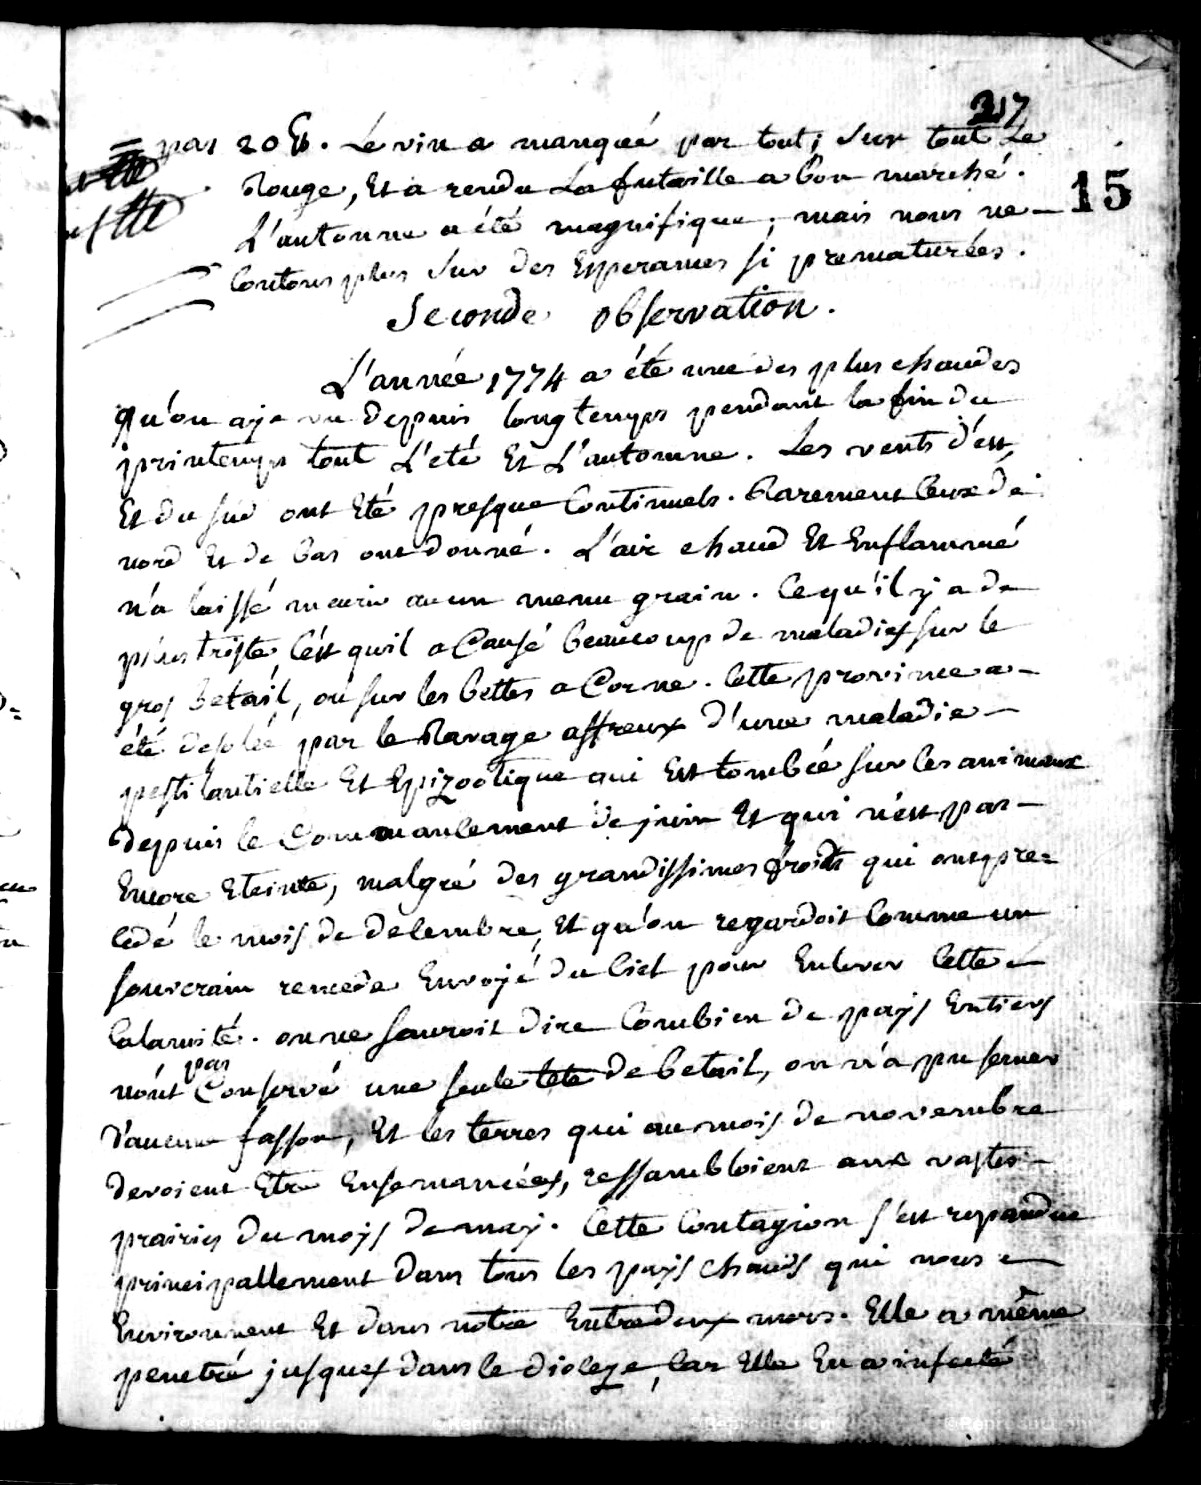 217
= pas 20 ₶. Le vin a manqué par tout, sur tout Le
Rouge, Et a rendu La futaille a bon marché.
15
L'autonne a été magnifique; mais nous ne
Contons plus sur des Esperances si prematurées.
Seconde observation.
L'année 1774 a été une des plus chaudes
qu'on aje vu depuis longtemps pendant la fin du
printemps tout L'eté Et L'automne. Les vents d'est,
Et du sud ont Eté presque Continuels. Rarement Ceux de
nord Et de bas ont donné. L'air chaud Et Enflammé
n'a laissé meurir aucun menu grain. Ce qu'il y a de
plus triste, C'est quil a Causé beaucoup de maladies sur le
gros betail, ou sur les bettes a Corne. Cette province a
été desolée par le Ravage affreux d'une maladie
pestilantielle Et Epizootique qui Est tombée sur les animaux
depuis le Commancement de juin Et qui n'est pas
Encore Eteinte, malgré des grandissimes froids qui ont pre=
cedé le mois de decembre, Et qu'on regardoit Comme un
souverain remede Envoyé du Ciel pour Enlever Cette
Calamité. on ne sauroit dire Combien de pays Entiers
n'ont pas Conservé une seule tete de betail, on n'a pu semer
d'aucune fasson, Et les terres qui au mois de novembre
devoient Etre Ensemancées, ressambloient aux vastes
prairies du moys de may. Cette Contagion s'est repandue
principallement dans tous les pays chauds qui nous
Environnent Et dans notre Entredeux mers. Elle a même
penetré jusques dans le dioceze, Car Elle En a infecté
©Reproduction ©Reproduction ©Reproduction ©Reproduction